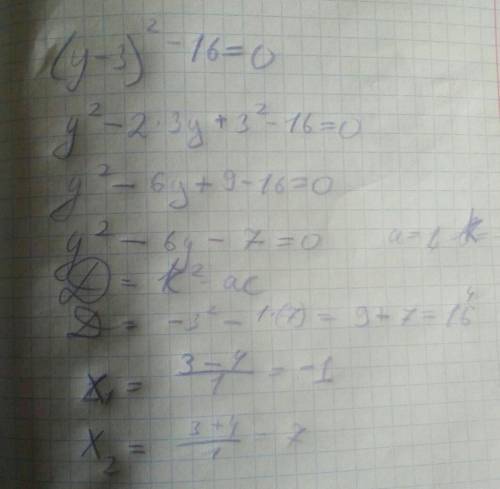 (y-3)² - 16 = 0
y² - 2·3y + 3² - 16 = 0
y² - 6y + 9 - 16 = 0
y² - 6y - 7 = 0 a = 1 k =
D = k² - ac
D = -3² - 1·(7) = 9 + 7 = 16 4
x₁ = (3-4)/1 = -1
x₂ = (3+4)/1 - 7